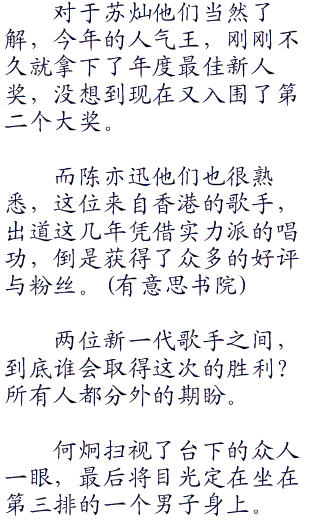 对于苏灿他们当然了
解，今年的人气王，刚刚不
久就拿下了年度最佳新人
奖，没想到现在又入围了第
二个大奖。
而陈亦迅他们也很熟
悉，这位来自香港的歌手，
出道这几年凭借实力派的唱
功，倒是获得了众多的好评
与粉丝。(有意思书院)
两位新一代歌手之间，
到底谁会取得这次的胜利？
所有人都分外的期盼。
何炯扫视了台下的众人
一眼，最后将目光定在坐在
第三排的一个男子身上。